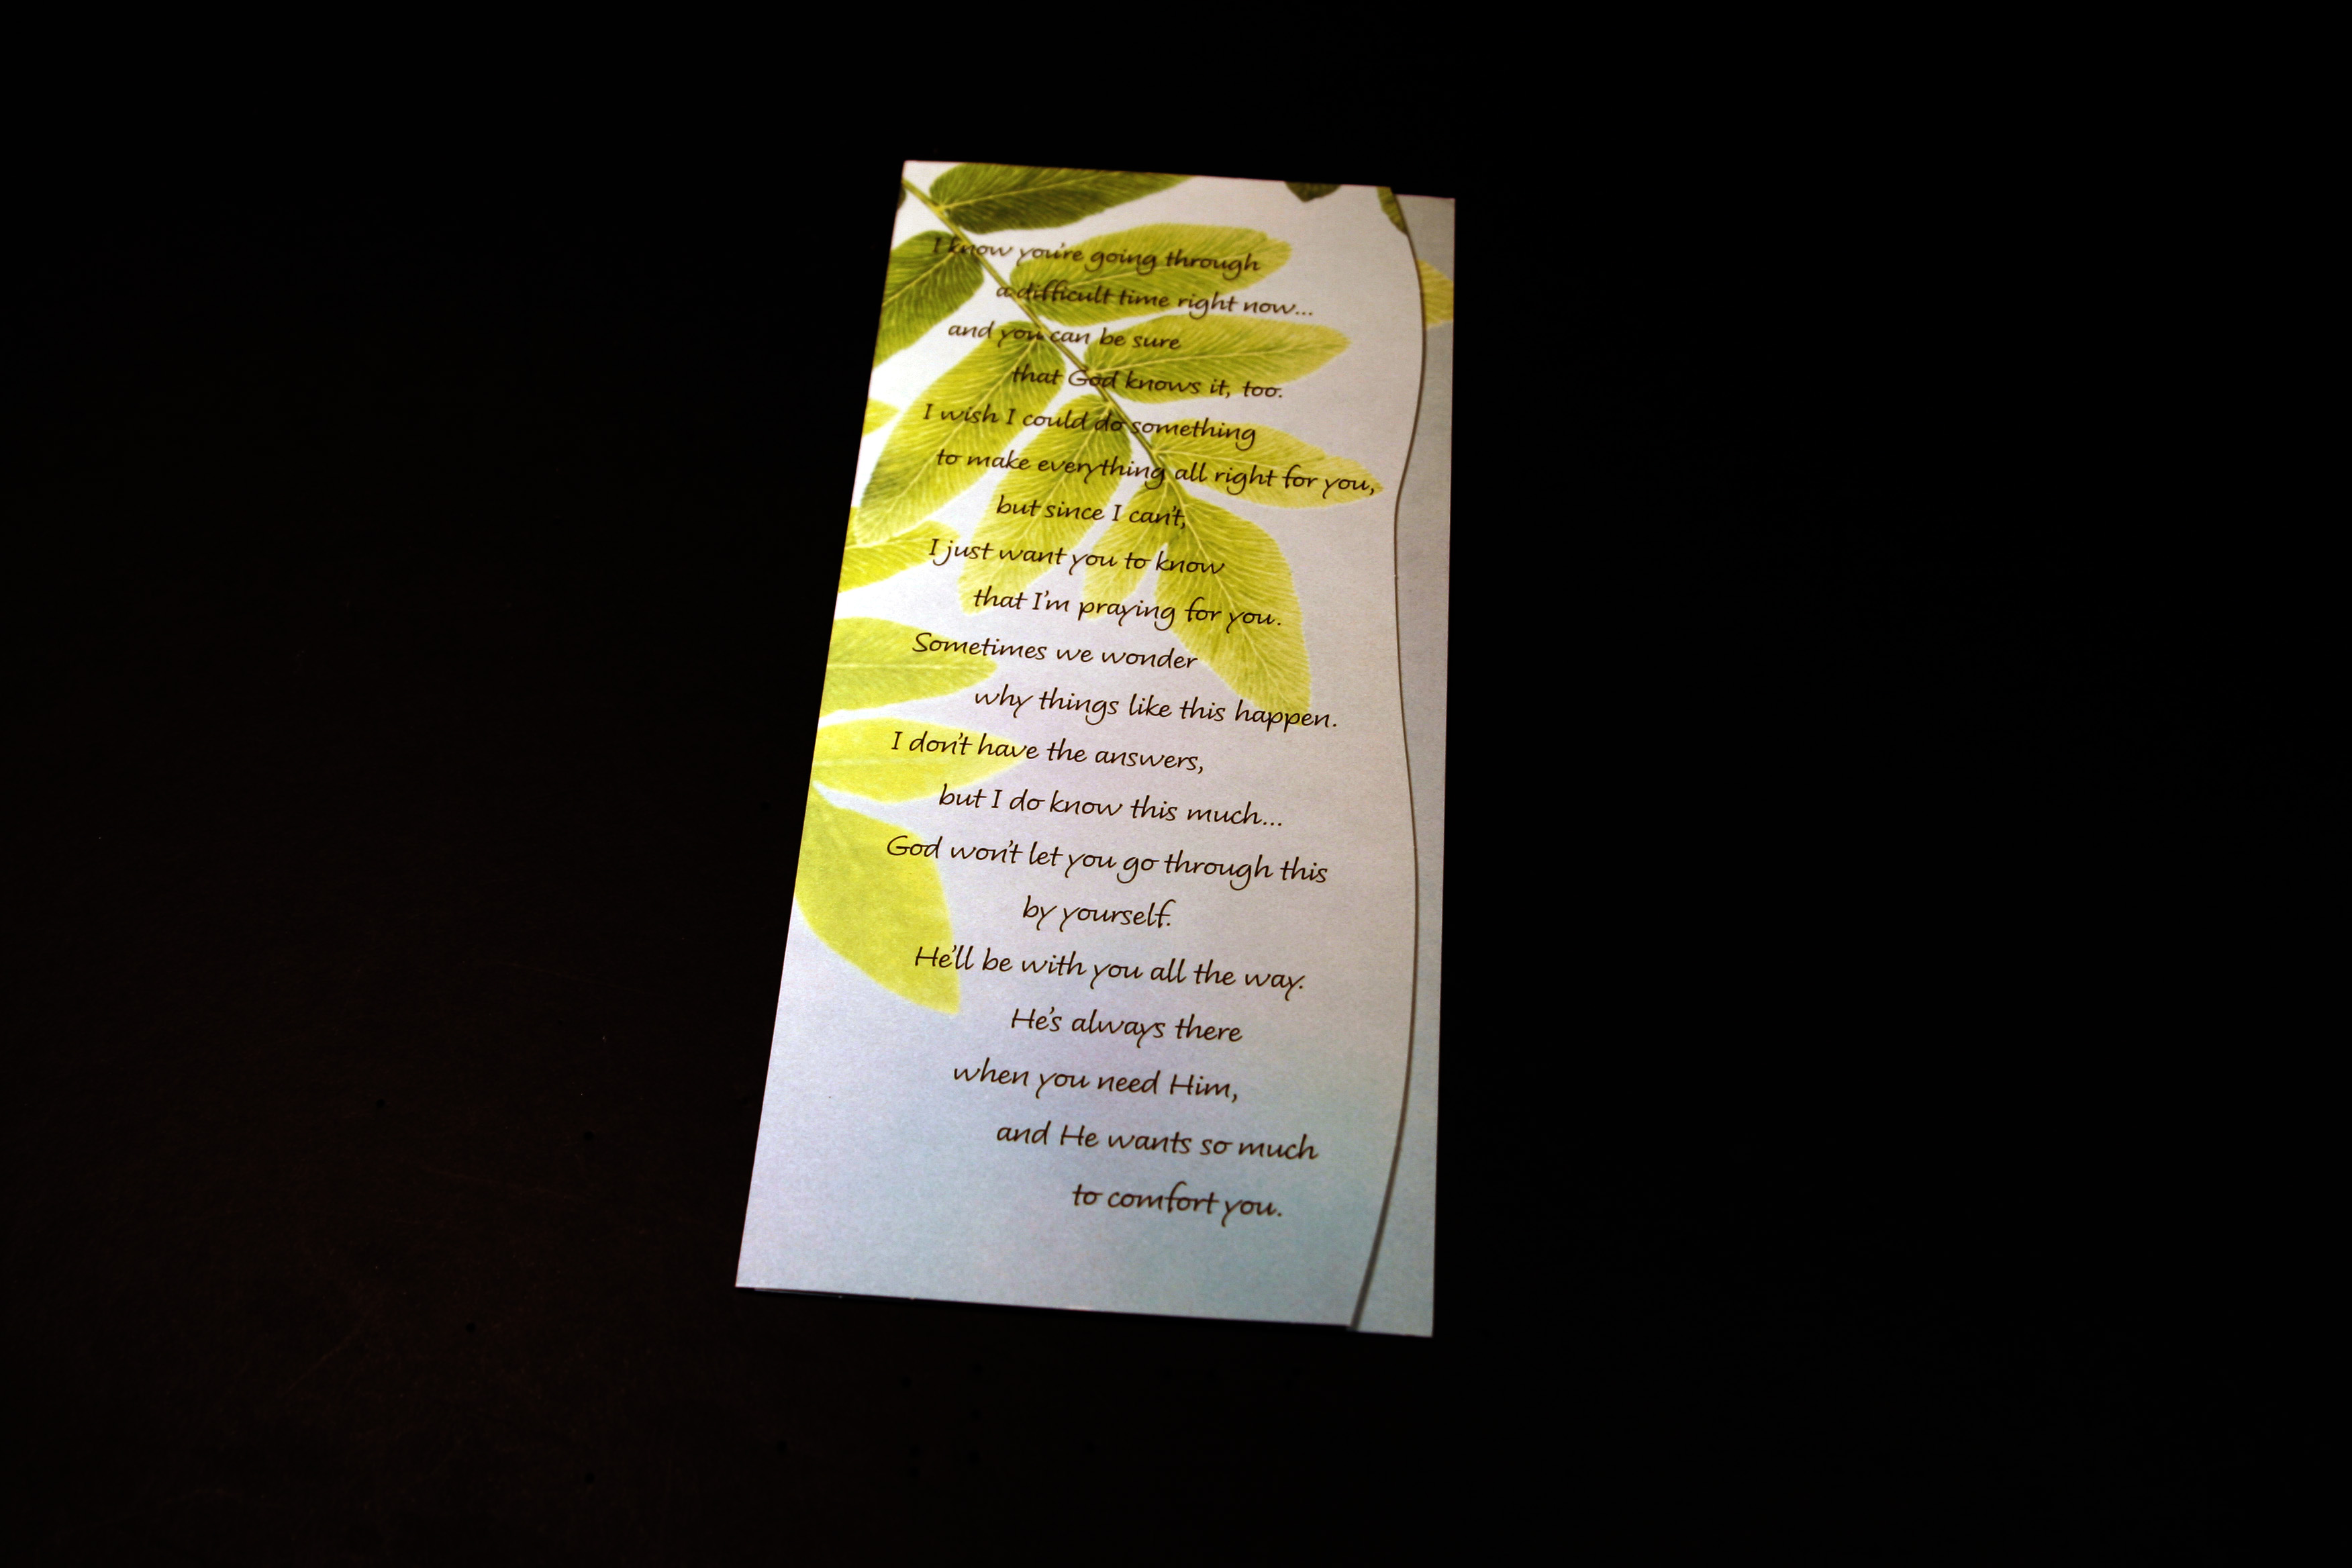 I know you're going through
a difficult time right now...
and you can be sure
that God knows it, too.
I wish I could do something
to make everything all right for you,
but since I can't,
I just want you to know
that I'm praying for you.
Sometimes we wonder
why things like this happen.
I don't have the answers,
but I do know this much...
God won't let you go through this
by yourself.
He'll be with you all the way.
He's always there
when you need Him,
and He wants so much
to comfort you.